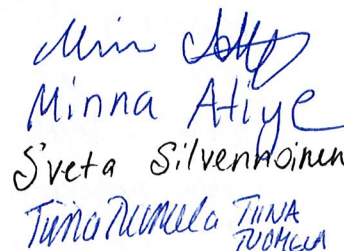 Minna Atiye
Sveta Silvennoinen
Tiina Tuomela TIINA
TUOMELA